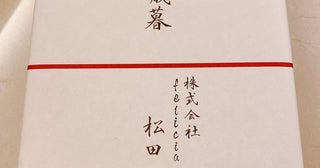 歳暮
株式会社
felicia
松田